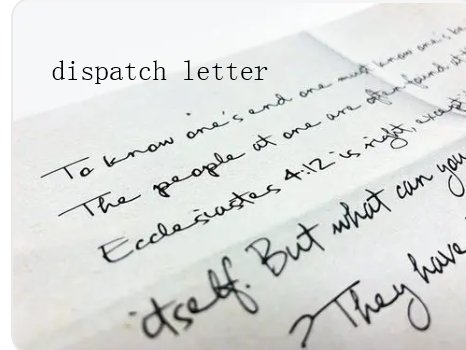 dispatch letter
To know one's end one must know one's
The people at one are often found, at
Ecclesiastes 4:12 is right, except
itself. But what can you
They have